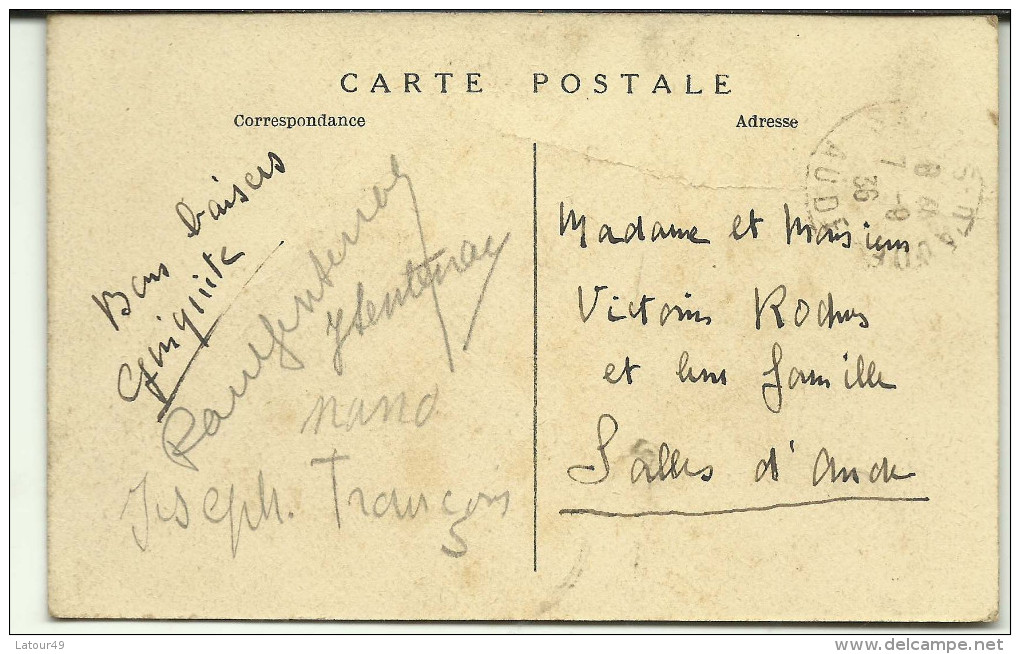 CARTE POSTALE
Correspondance
Adresse
Bons baisers
Paul Sentenac
J Sentenac
nano
Joseph. François
Madame et Monsieur
Victorin Roches
et leur famille
Salles d'Aude
AUDE
7 -8
36
Latour49
www.delcampe.net